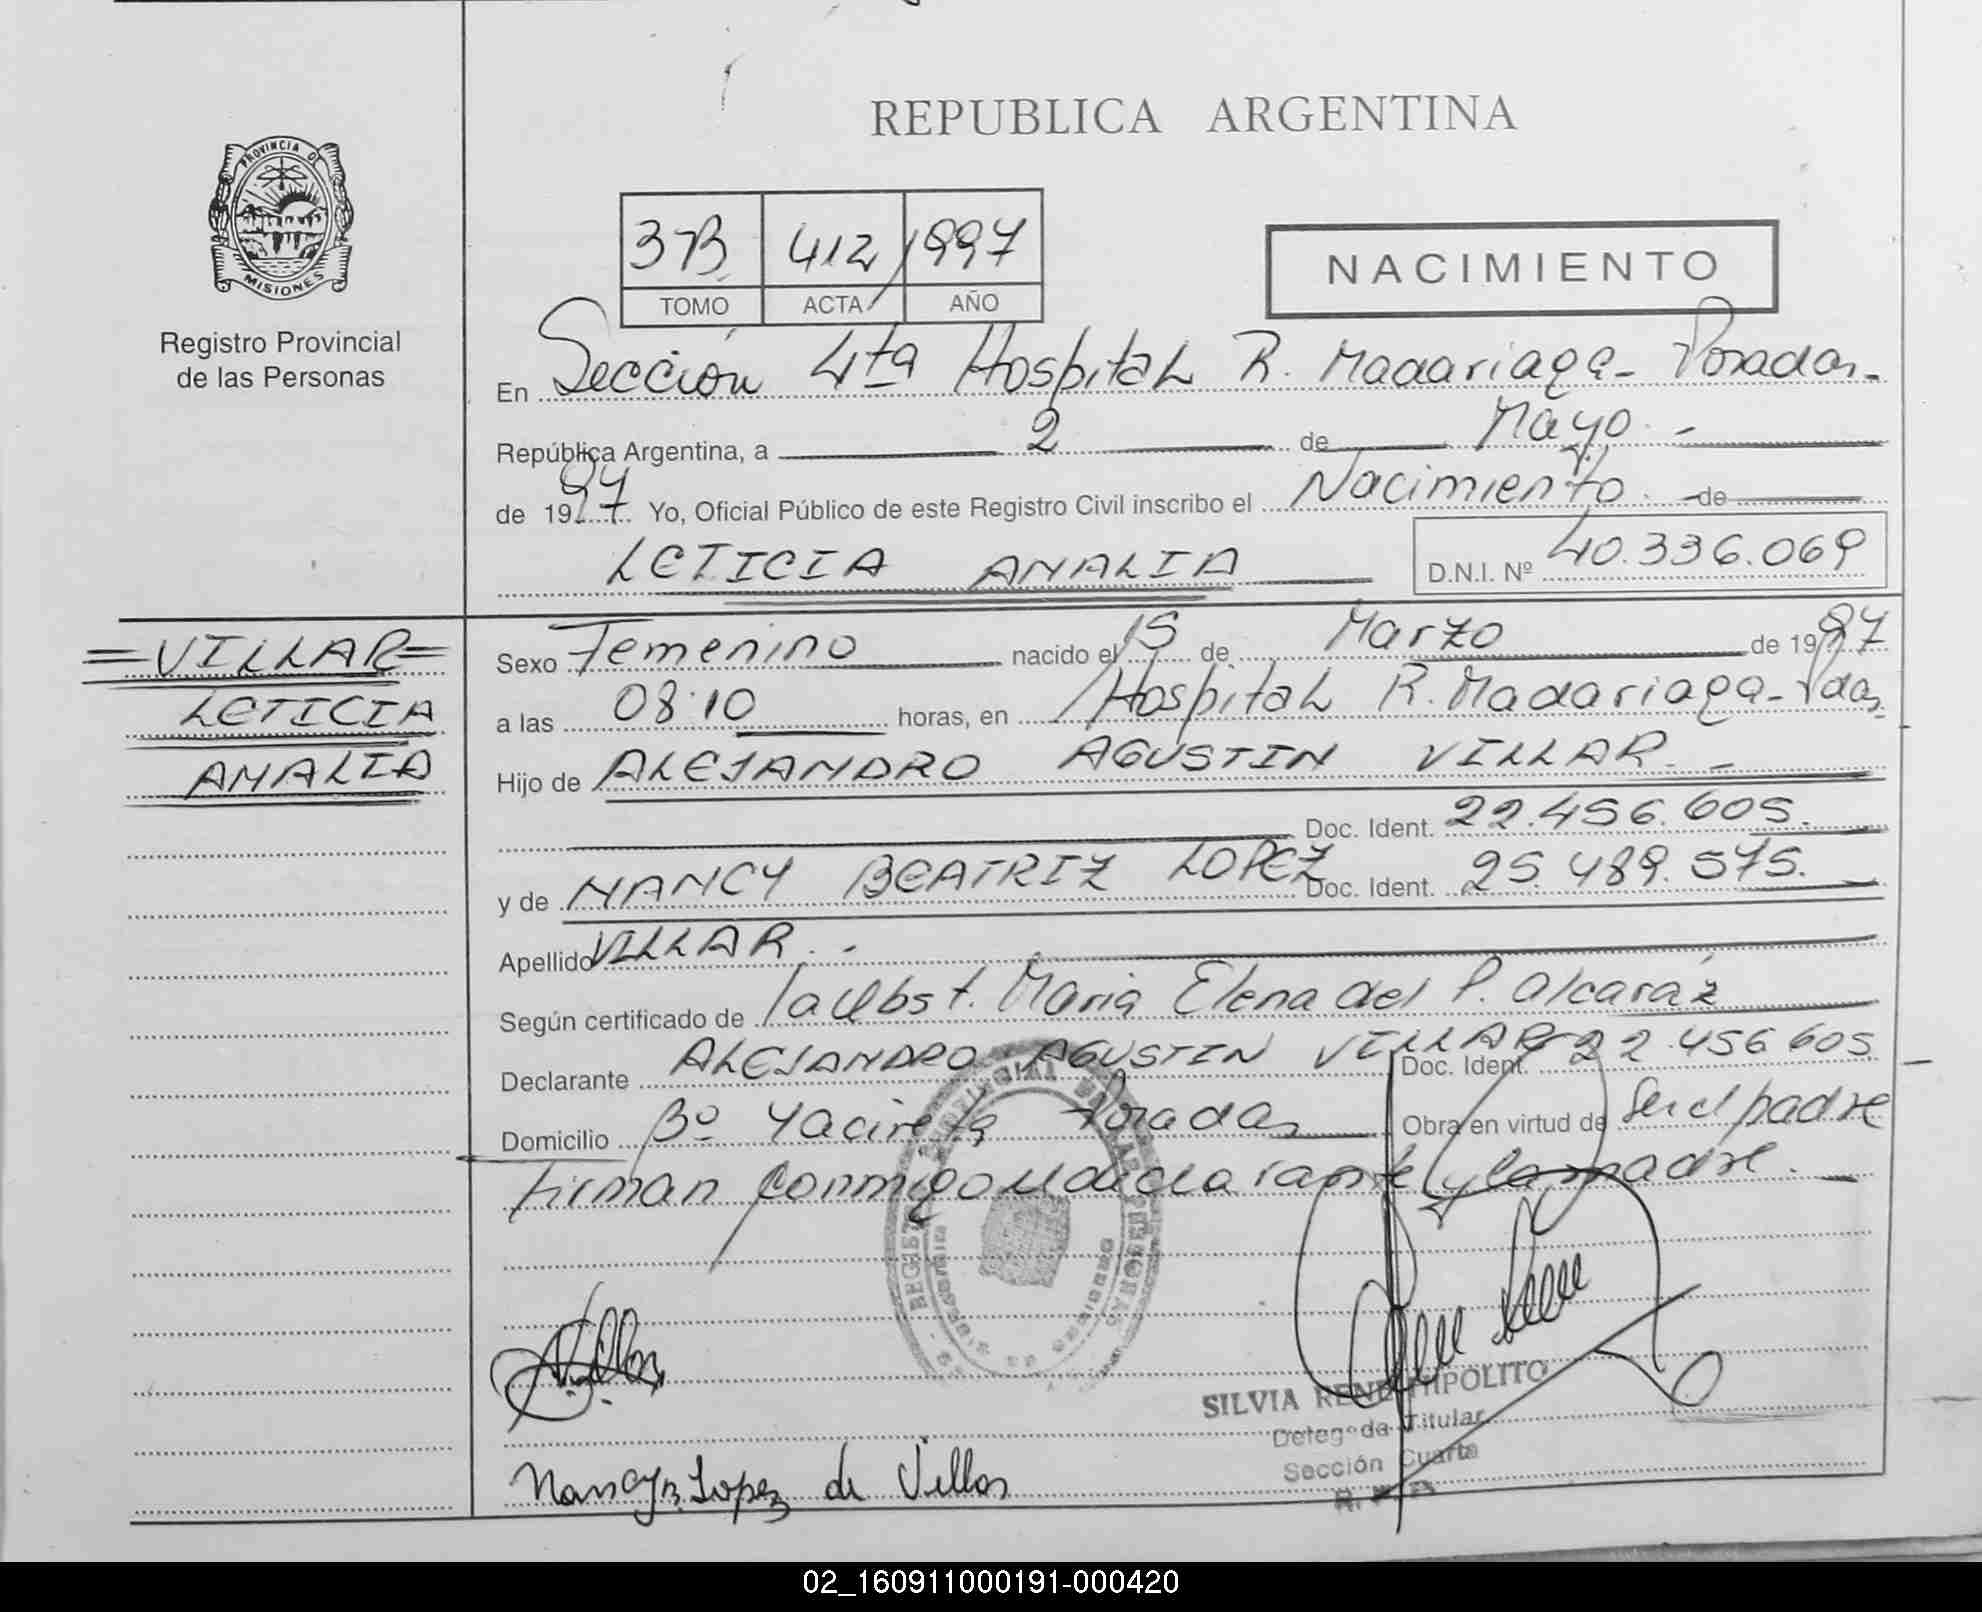 REPUBLICA ARGENTINA
PROVINCIA DE
MISIONES
Registro Provincial
de las Personas
3B 412 1997
TOMO ACTA AÑO
NACIMIENTO
En Sección 4ta Hospital R. Madariaga - Posadas -
República Argentina, a 2 de Mayo -
de 1997 Yo, Oficial Público de este Registro Civil inscribo el Nacimiento de
LETICIA ANALIA D.N.I. Nº 40.336.069
=VILLAR=
LETICIA
ANALIA
Sexo Femenino nacido el 15 de Marzo de 1997
a las 08:10 horas, en Hospital R. Madariaga - Pdas
Hijo de ALEJANDRO AGUSTIN VILLAR. -
Doc. Ident. 22.456.605.
y de NANCY BEATRIZ LOPEZ Doc. Ident. 25.489.575. -
Apellido VILLAR. -
Según certificado de la Obst. Maria Elena del P. Alcaráz
Declarante ALEJANDRO AGUSTIN VILLAR Doc. Ident. 22.456 605
Domicilio Bº Yacireta Posadas Obra en virtud de Ser el padre
firman conmigo el declarante y la madre. -
Villar
SILVIA RENE HIPOLITO
Delegada Titular
Sección Cuarta
Nancy B. Lopez de Villar
02_160911000191-000420